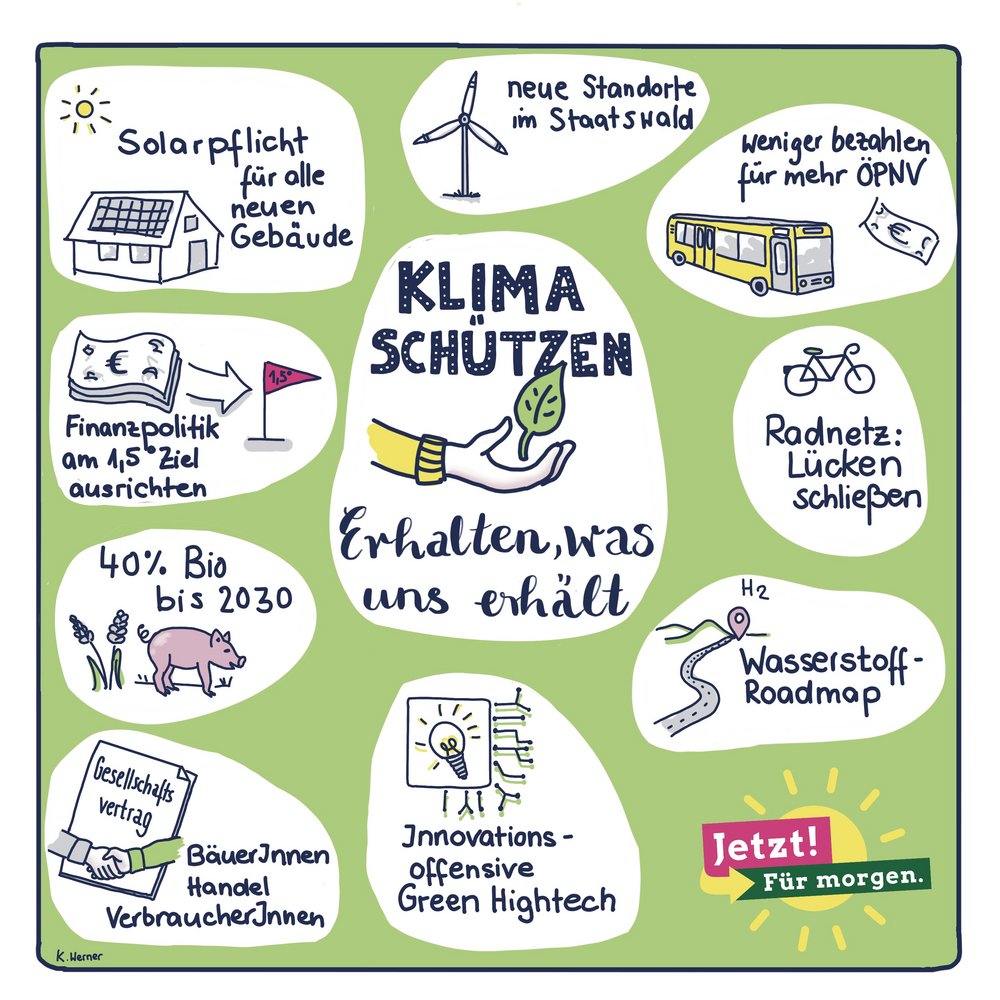 Solarpflicht
für alle
neuen
Gebäude
neue Standorte
im Staatswald
weniger bezahlen
für mehr ÖPNV
€
KLIMA
SCHÜTZEN
Erhalten, was
uns erhält
€
1,5°
Finanzpolitik
am 1,5° Ziel
ausrichten
Radnetz:
Lücken
schließen
40% Bio
bis 2030
H2
Wasserstoff-
Roadmap
Gesellschafts
vertrag
BäuerInnen
Handel
VerbraucherInnen
Innovations-
offensive
Green Hightech
Jetzt!
Für morgen.
K. Werner